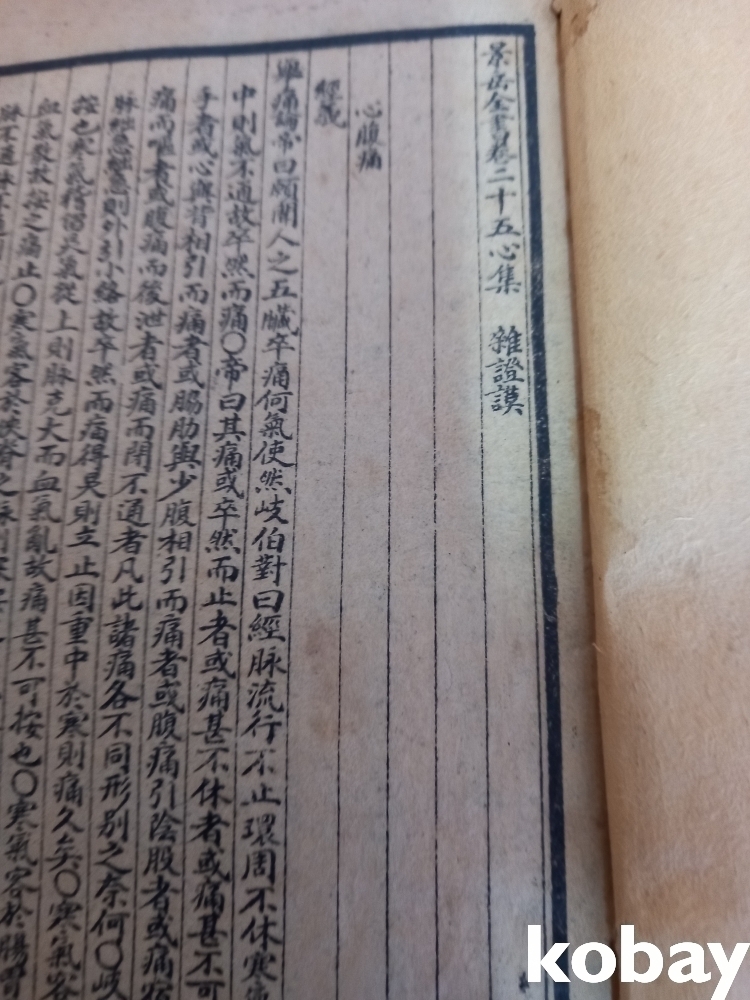 景岳全書卷二十五心集 雜證謨
心腹痛
經義
舉痛論帝曰願聞人之五臟卒痛何氣使然岐伯對曰經脉流行不止環周不休寒氣
中則氣不通故卒然而痛〇帝曰其痛或卒然而止者或痛甚不休者或痛甚不可
手者或心與背相引而痛者或脇肋與少腹相引而痛者或腹痛引陰股者或痛宿
痛而嘔者或腹痛而後泄者或痛而閉不通者凡此諸痛各不同形別之奈何〇岐
脉絀急絀急則外引小絡故卒然而痛得炅則立止因重中於寒則痛久矣〇寒氣客
按也寒氣稽留炅氣從上則脉充大而血氣亂故痛甚不可按也〇寒氣客於腸胃
血氣散故按之痛止〇寒氣客於俠脊之脉則深
kobay